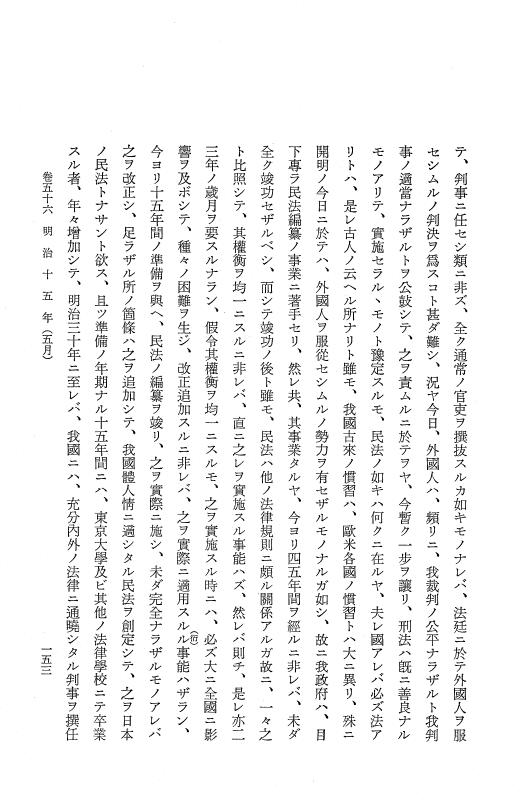 テ、判事ニ任セシ類ニ非ズ、全ク通常ノ官吏ヲ撰抜スルカ如キモノナレバ、法廷ニ於テ外國人ヲ服
セシムルノ判決ヲ爲スコト甚ダ難シ、況ヤ今日、外國人ハ、頻リニ、我裁判ノ公平ナラザルト我判
事ノ適當ナラザルトヲ公鼓シテ、之ヲ責ムルニ於テヲヤ、今暫ク一步ヲ讓リ、刑法ハ旣ニ善良ナル
モノアリテ、實施セラルヽモノト豫定スルモ、民法ノ如キハ何クニ在ルヤ、夫レ國アレバ必ズ法ア
リトハ、是レ古人ノ云ヘル所ナリト雖モ、我國古來ノ慣習ハ、歐米各國ノ慣習トハ大ニ異リ、殊ニ
開明ノ今日ニ於テハ、外國人ヲ服從セシムルノ勢力ヲ有セザルモノナルガ如シ、故ニ我政府ハ、目
下專ラ民法編纂ノ事業ニ著手セリ、然レ共、其事業タルヤ、今ヨリ四五年間ヲ經ルニ非レバ、未ダ
全ク竣功セザルベシ、而シテ竣功ノ後ト雖モ、民法ハ他ノ法律規則ニ頗ル關係アルガ故ニ、一々之
ト比照シテ、其權衡ヲ均一ニスルニ非レバ、直ニ之レヲ實施スル事能ハズ、然レバ則チ、是レ亦二
三年ノ歲月ヲ要スルナラン、假令其權衡ヲ均一ニスルモ、之ヲ實施スル時ニハ、必ズ大ニ全國ニ影
響ヲ及ボシテ、種々ノ困難ヲ生ジ、改正追加スルニ非レバ、之ヲ實際ニ適用スルル(衍)事能ハザラン、
今ヨリ十五年間ノ準備ヲ與ヘ、民法ノ編纂ヲ竣リ、之ヲ實際ニ施シ、未ダ完全ナラザルモノアレバ
之ヲ改正シ、足ラザル所ノ箇條ハ之ヲ追加シテ、我國體人情ニ適シタル民法ヲ創定シテ、之ヲ日本
ノ民法トナサント欲ス、且ツ準備ノ年期ナル十五年間ニハ、東京大學及ビ其他ノ法律學校ニテ卒業
スル者、年々增加シテ、明治三十年ニ至レバ、我國ニハ、充分內外ノ法律ニ通曉シタル判事ヲ撰任
卷五十六 明治十五年(五月)
一五三